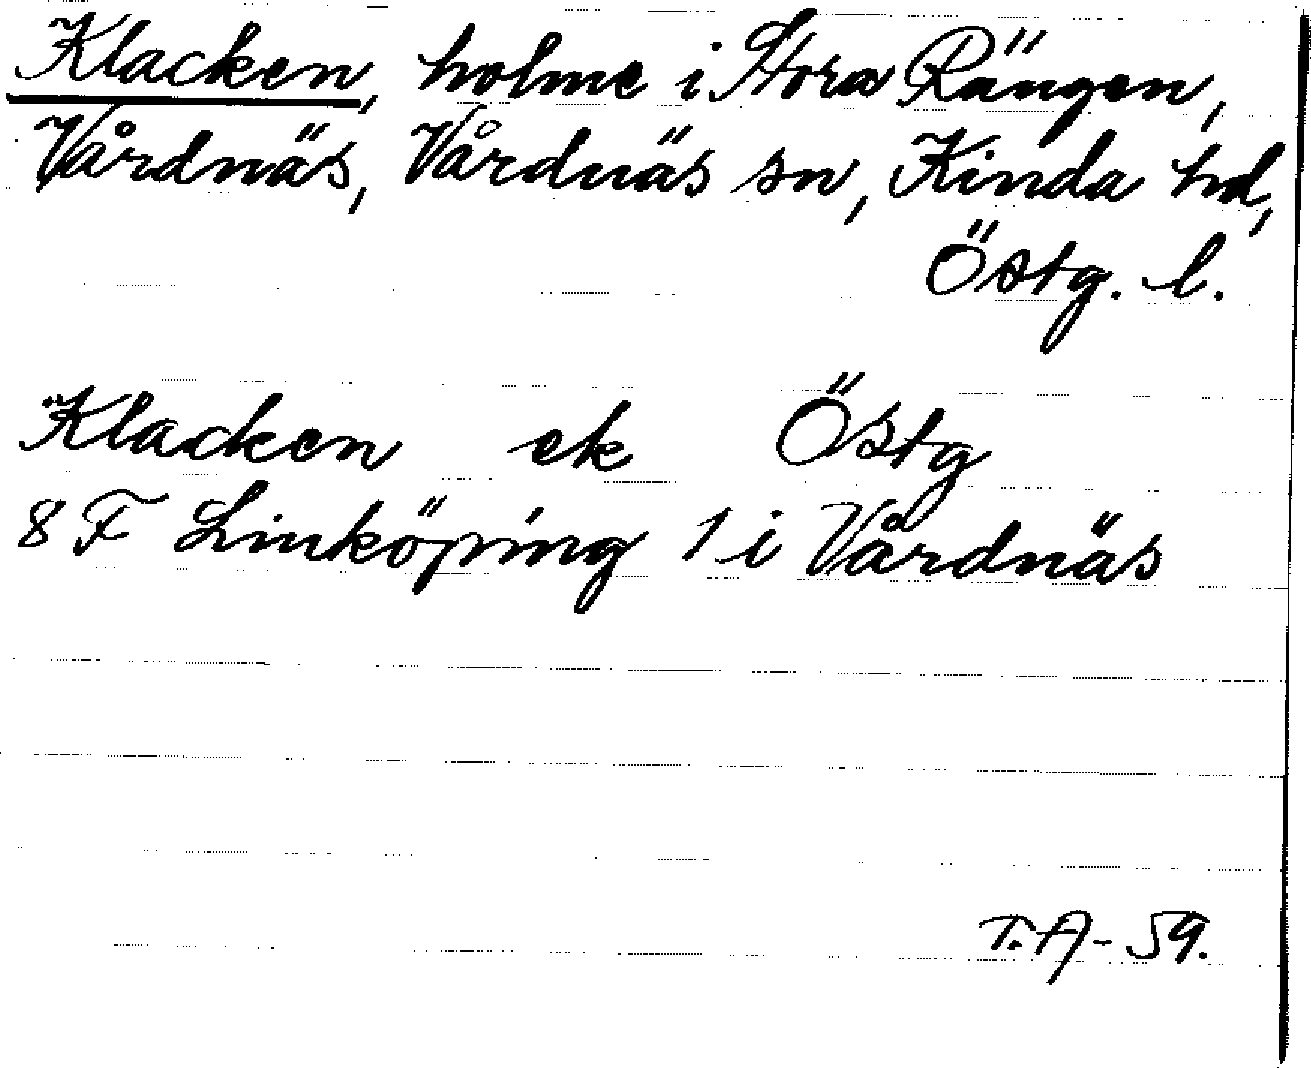 Klacken, holme i Stora Rängen,
Vårdnäs, Vårdnäs sn, Kinda hd,
Östg. l.
Klacken ek Östg
8 F Linköping 1 i Vårdnäs
T.A-59.